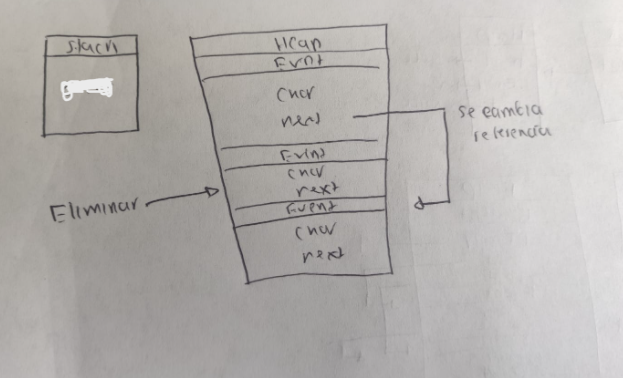 Stack
Heap
Event
char
next
se cambia
referencia
Event
char
next
Eliminar
Event
char
next